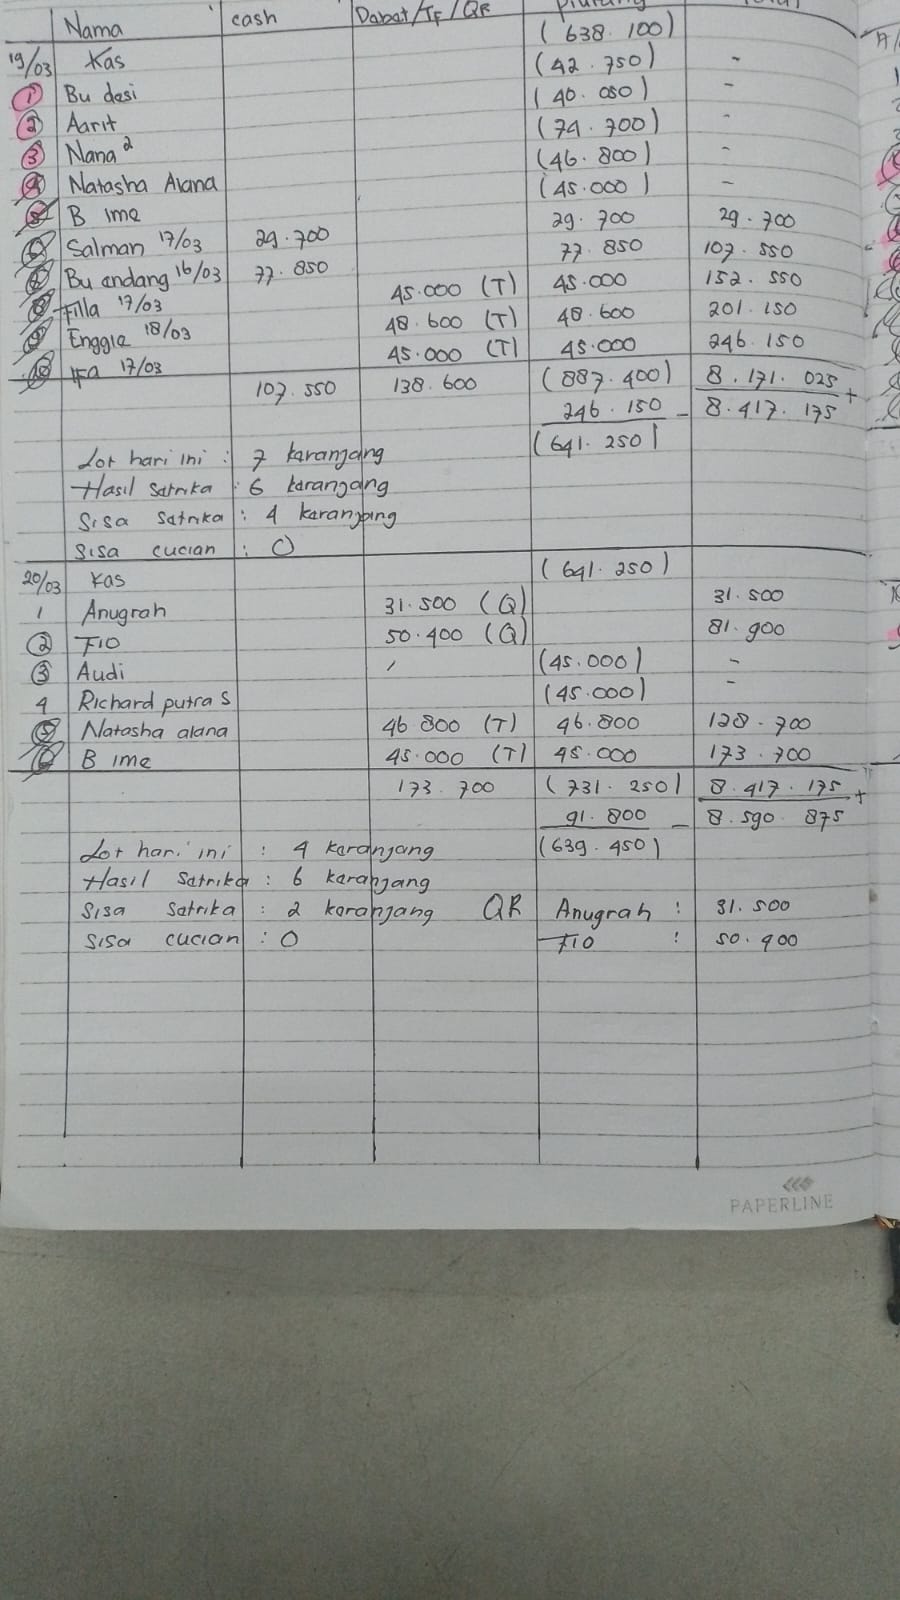 Nama cash Debet/TF/QR Piutang Total
19/03 Kas (638.100)
1 Bu desi (42.750) -
2 Aarit (40.050) -
3 Nana² (74.700) -
4 Natasha Alana (46.800) -
5 B Ime (45.000) -
6 Salman 17/03 29.700 29.700 29.700
Bu endang 16/03 77.850 77.850 107.550
8 Filla 17/03 45.000 (T) 45.000 152.550
9 Enggle 18/03 48.600 (T) 48.600 201.150
10 Ifa 17/03 45.000 (T) 45.000 246.150
107.550 138.600 (887.400) 8.171.025 +
246.150 - 8.417.175
(641.250)
Lot hari ini : 7 Karanjang
Hasil Setrika : 6 karanjang
Sisa Setrika : 4 karanjang
Sisa cucian : 0
20/03 Kas (641.250)
1 Anugrah 31.500 (Q) 31.500
2 FIO 50.400 (Q) 81.900
3 Audi (45.000) -
4 Richard putra S (45.000) -
5 Natasha alana 46.800 (T) 46.800 128.700
6 B Ime 45.000 (T) 45.000 173.700
173.700 (731.250) 8.417.175 +
91.800 - 8.590.875
(639.450)
Lot hari ini : 4 keranjang
Hasil Setrika : 6 keranjang
Sisa Setrika : 2 keranjang QR Anugrah : 31.500
Sisa cucian : 0 FIO : 50.400
PAPERLINE